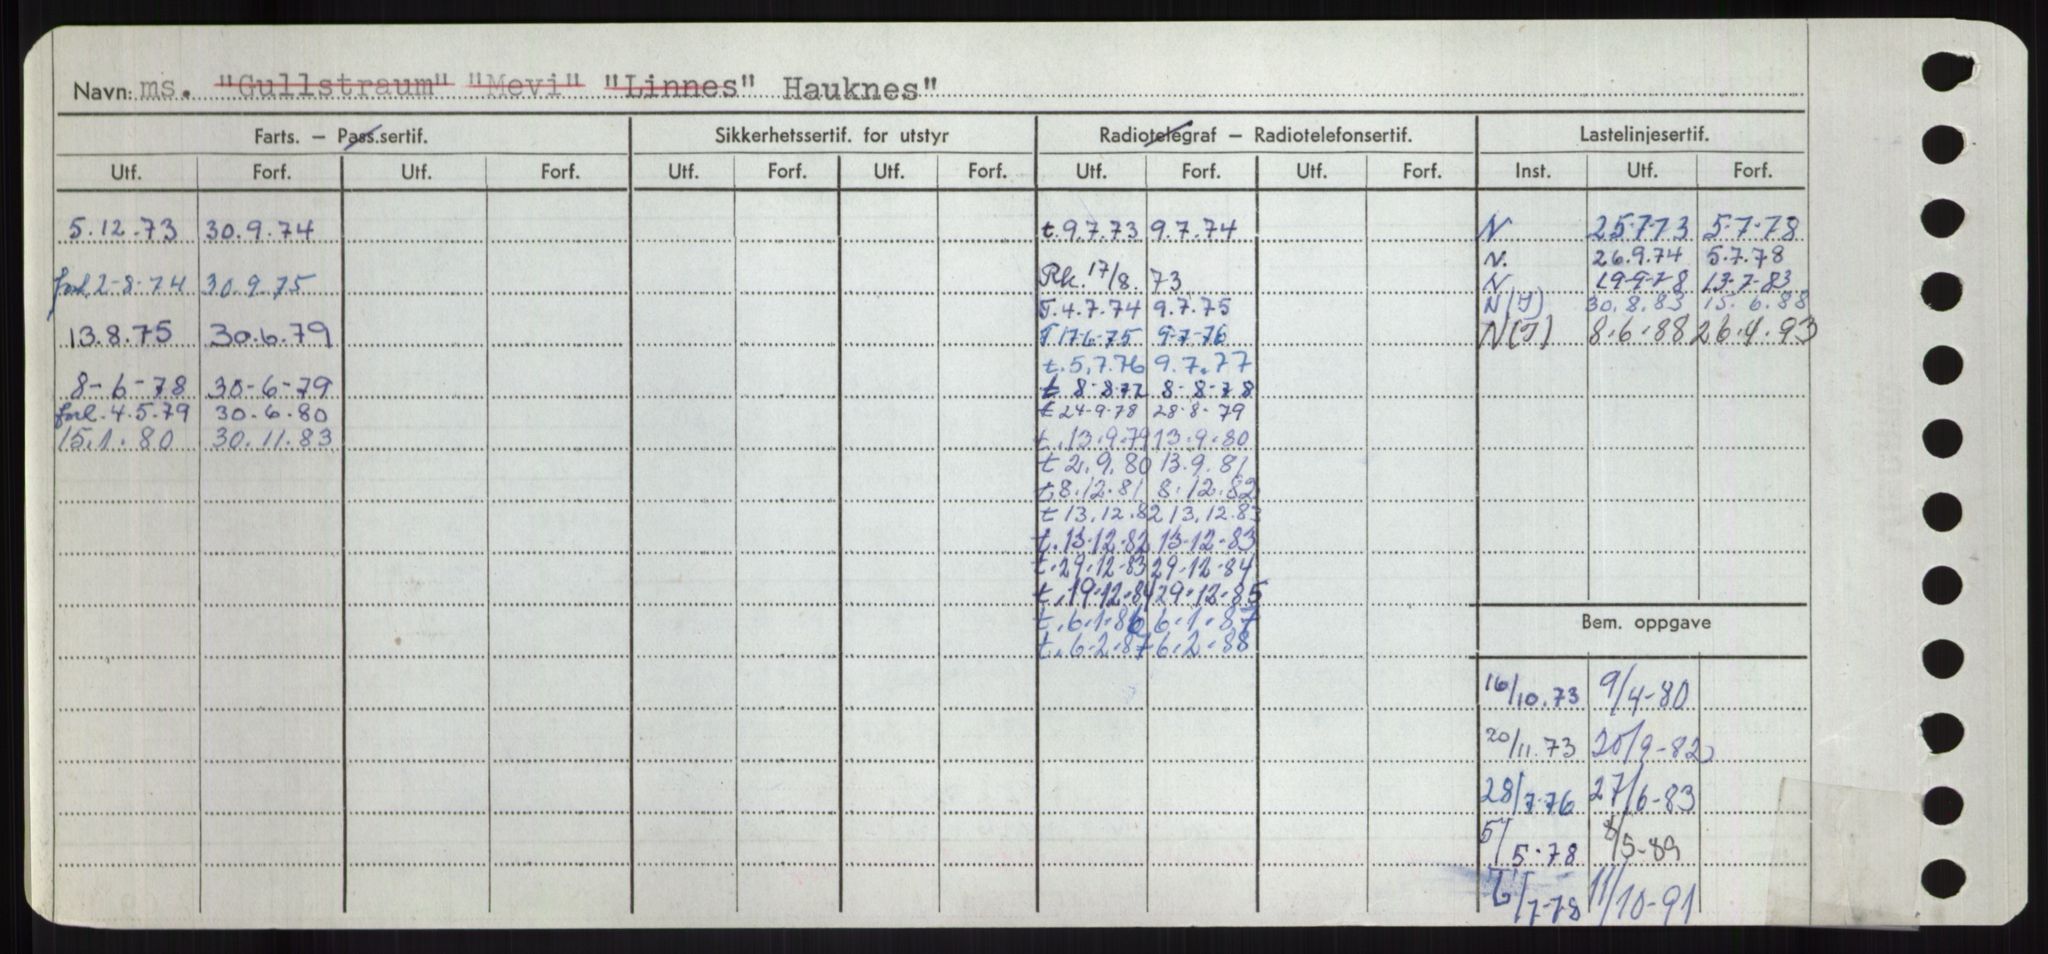 Navn: ms. "Gullstraum" "Mevi" "Linnes" Hauknes"
Farts. — Pass.sertif. Sikkerhetssertif. for utstyr Radiotelegraf — Radiotelefonsertif. Lastelinjesertif.
Utf. Forf. Utf. Forf. Utf. Forf. Utf. Forf. Utf. Forf. Utf. Forf. Inst. Utf. Forf.
5.12.73 30.9.74 t.9.7.73 9.7.74 N 25.7.73 5-7-78
N. 26.9.74 5.7.78
forl. 2-8-74 30.9.75 Rk. 17/8. 73 N 19-9-78 13-7-83
T.4.7.74 9.7.75 N(I) 30.8.83 15.6.88
13.8.75 30.6.79 T 17-6-75 9-7-76 N(I) 8.6.88 26.4.93
t.5.7.76 9.7.77
8-6-78 30-6-79 t 8-8-77 8-8-78
forl. 4.5.79 30.6.80 t 24-9-78 28-8-79
15.1.80 30.11.83 t.13.9.79 13.9.80
t 2.9.80 13.9.81
t.8.12.81 8.12.82
t 13.12.82 13.12.83
t.13-12-82 13-12-83
t.29.12-83 29-12-84
t.19.12.84 29-12-85
t.6.1.86 6.1.87 Bem. oppgave
t.6.2.87 6.2.88
16/10.73 9/4-80
20/11.73 20/9-82
28/7-76 27/6-83
5/5-78 8/5-89
/7-78 11/10-91